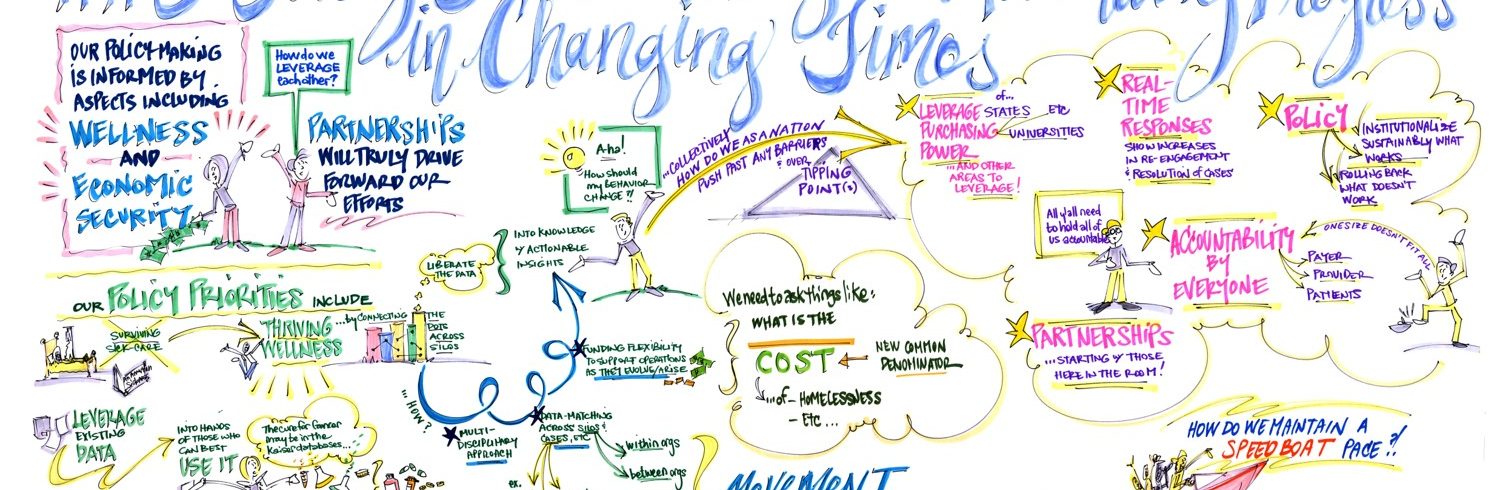 in Changing Times
OUR POLICY-MAKING
IS INFORMED BY
ASPECTS INCLUDING
WELLNESS
AND
ECONOMIC
SECURITY
How do we
LEVERAGE
each other?
PARTNERSHIPS
WILL TRULY DRIVE
FORWARD OUR
EFFORTS
OUR POLICY PRIORITIES INCLUDE
SURVIVING
SICK-CARE
THRIVING
WELLNESS
...by CONNECTING
THE
DOTS
ACROSS
SILOS
LIBERATE
THE DATA
INTO KNOWLEDGE
& ACTIONABLE
INSIGHTS
LEVERAGE
EXISTING
DATA
INTO HANDS
OF THOSE WHO
CAN BEST
USE IT
The cure for Cancer
may be in the
Kaiser databases...
A-ho!
How should
my BEHAVIOR
CHANGE?!
...COLLECTIVELY
HOW DO WE AS A NATION
PUSH PAST ANY BARRIERS
& OVER
TIPPING
POINT(s)
...HOW?
MULTI-
DISCIPLINARY
APPROACH
DATA-MATCHING
ACROSS SILOS &
CASES, ETC
within orgs
between orgs
ex.
FUNDING FLEXIBILITY
TO SUPPORT OPERATIONS
AS THEY EVOLVE/ARISE
We need to ask things like:
WHAT IS THE
COST
NEW COMMON
DENOMINATOR
...of - HOMELESSNESS
- ETC...
MOVEMENT
LEVERAGE
PURCHASING
POWER
of...
STATES
ETC
UNIVERSITIES
...AND OTHER
AREAS TO
LEVERAGE!
REAL-
TIME
RESPONSES
SHOW INCREASES
IN RE-ENGAGEMENT
& RESOLUTION of CASES
POLICY
INSTITUTIONALIZE
SUSTAINABLY WHAT
WORKS
ROLLING BACK
WHAT DOESN'T
WORK
All y'all need
to hold all of
us accountable
ACCOUNTABILITY
BY
EVERYONE
ONE SIZE DOESN'T FIT ALL
PAYER
PROVIDER
PATIENTS
PARTNERSHIPS
...STARTING w/ THOSE
HERE IN THE ROOM!
HOW DO WE MAINTAIN A
SPEEDBOAT PACE?!